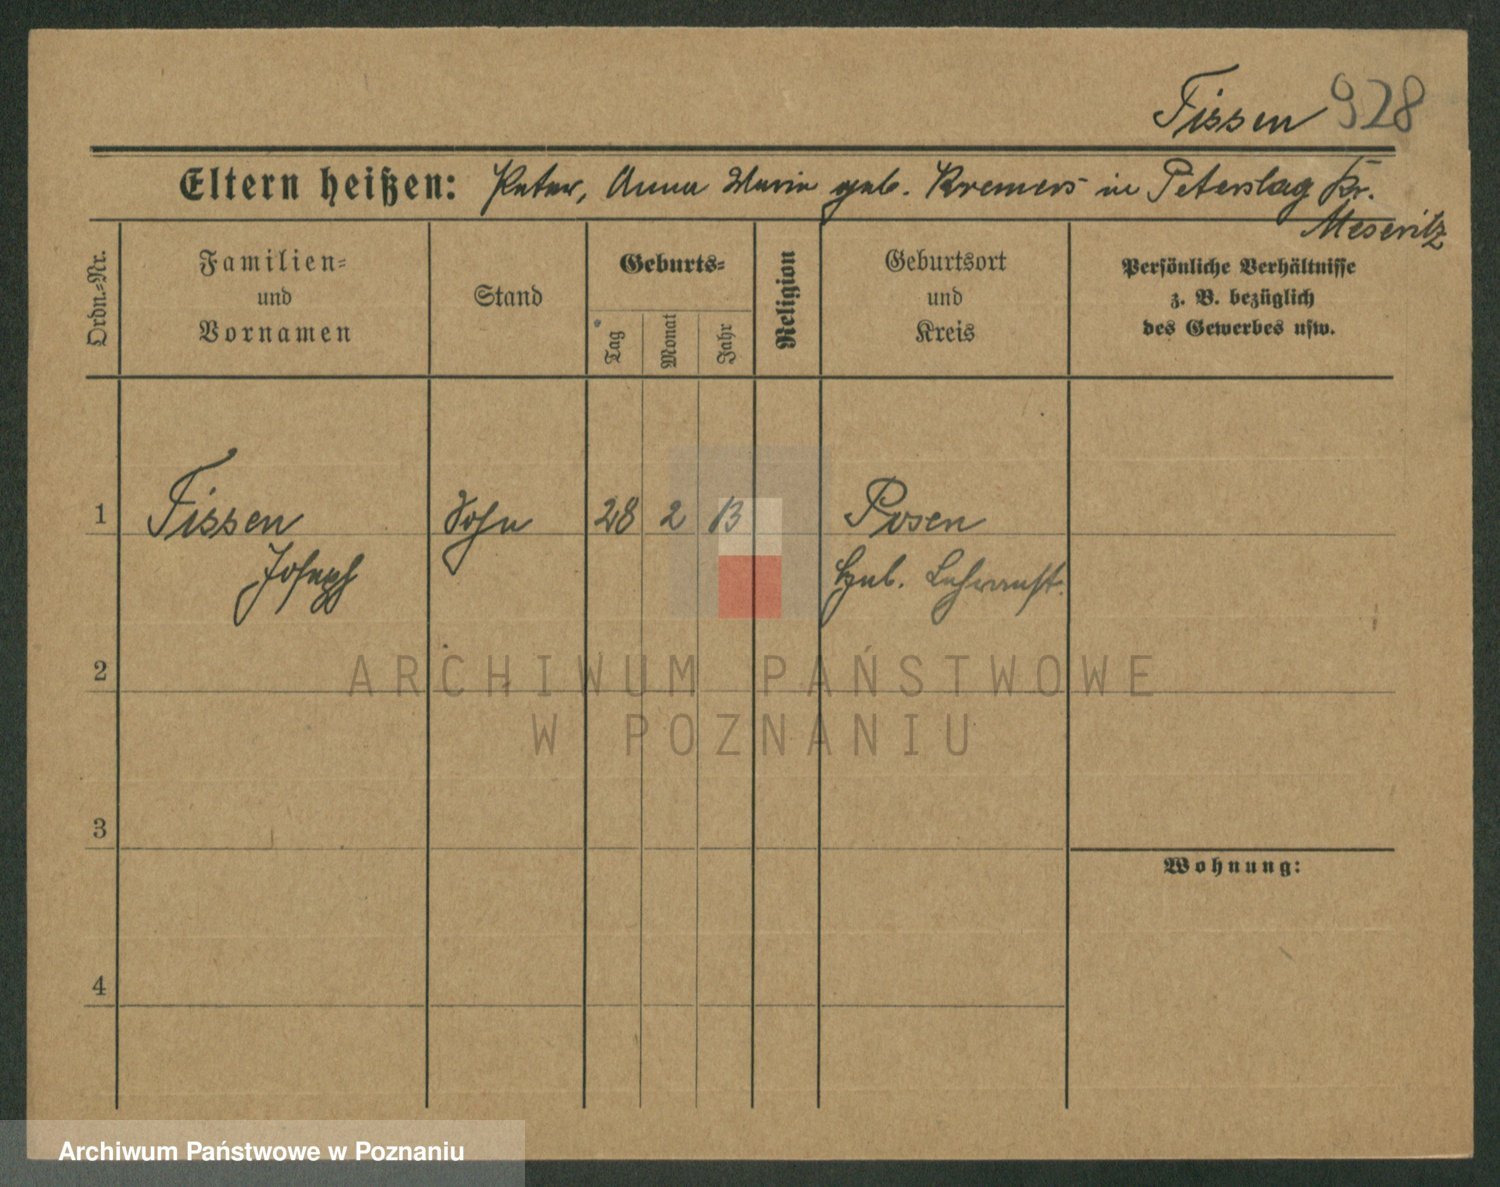 Fissen 928
Eltern heißen: Peter, Anna Marie geb. Kremers in Peterslag Kr.
Meseritz
Ordn.-Nr.
Familien-
und
Vornamen
Stand
Geburts-
Tag
Monat
Jahr
Religion
Geburtsort
und
Kreis
Persönliche Verhältnisse
z. B. bezüglich
des Gewerbes usw.
1 Fissen Sohn 28 2 13 Posen
Joseph Heb. Lehranst.
ARCHIWUM PAŃSTWOWE
W POZNANIU
2
3
Wohnung:
4
Archiwum Państwowe w Poznaniu